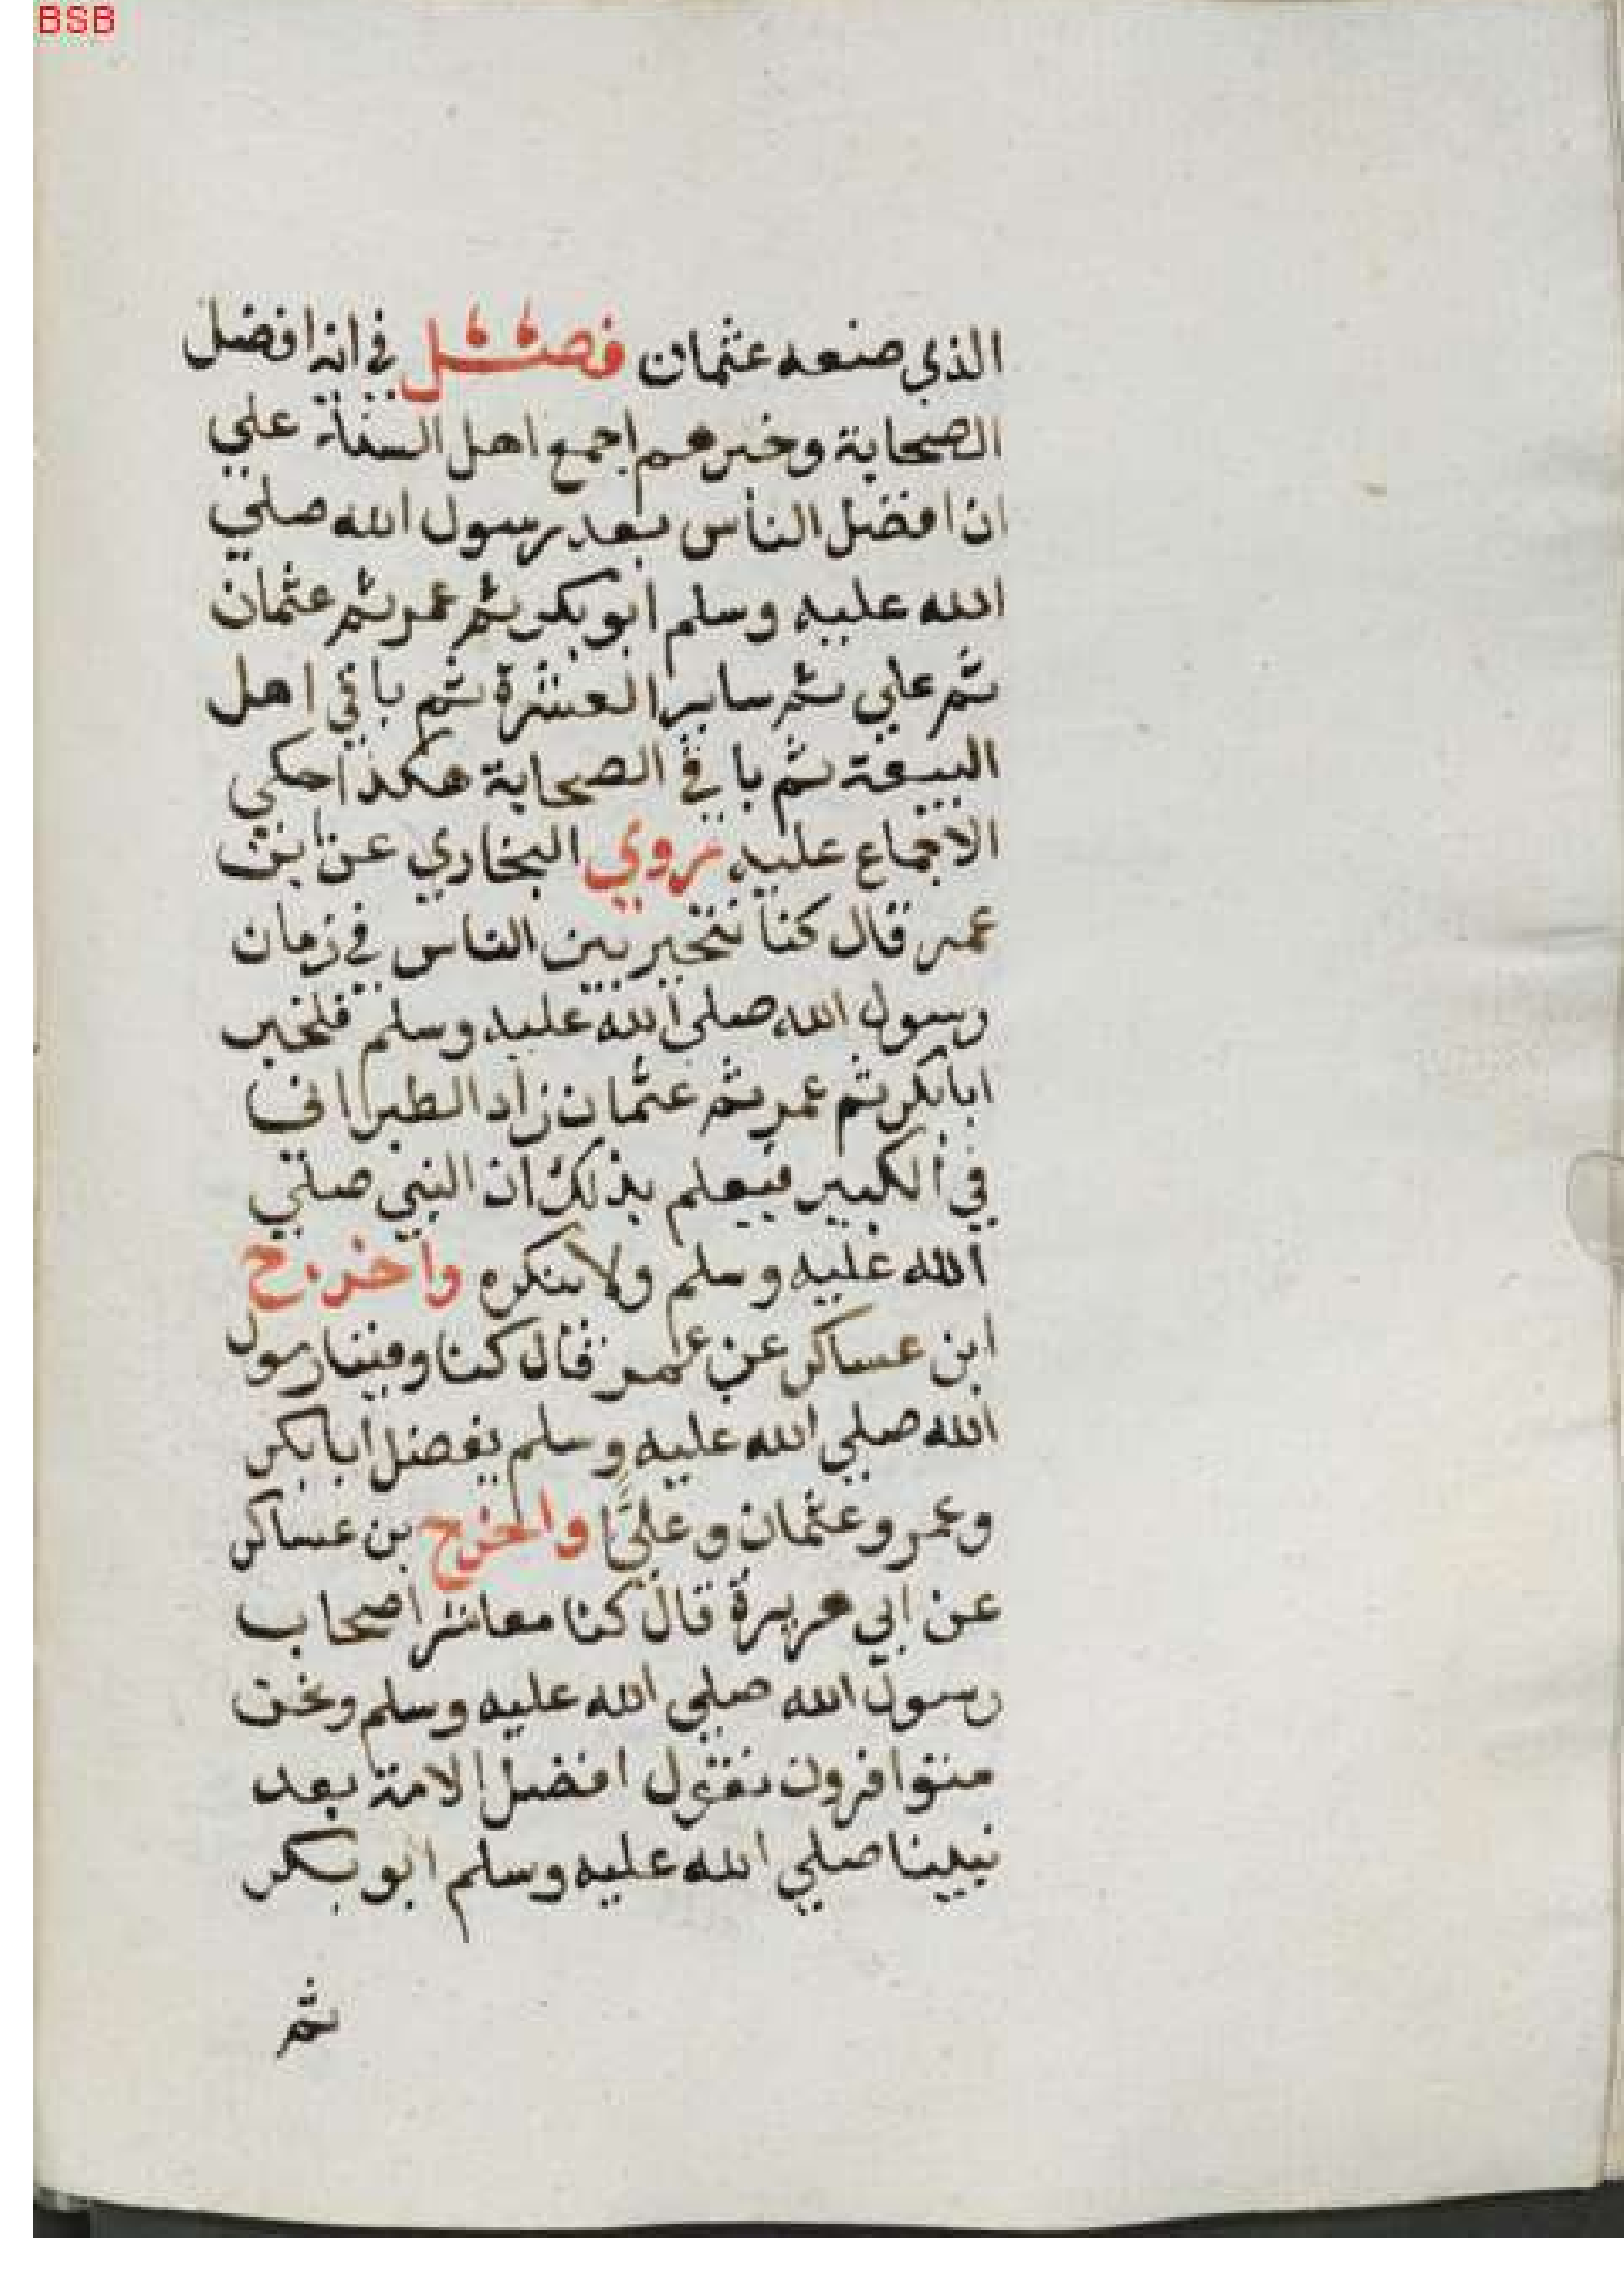 BSB
الذي صنعه عثمان فصل في انه افضل
الصحابة وخيرهم اجمع اهل السنة علي
ان افضل الناس بعد رسول الله صلي
الله عليه وسلم ابو بكر ثم عمر ثم عثمان
ثم علي ثم ساير العشرة ثم باقي اهل
البيعة ثم باقي الصحابة هكذا حكي
الاجماع عليه روي البخاري عن ابن
عمر قال كنا نتخير بين الناس في زمان
رسول الله صلي الله عليه وسلم فنخير
ابا بكر ثم عمر ثم عثمان زاد الطبراني
في الكبير فيعلم بذلك ان النبي صلي
الله عليه وسلم ولا ينكره واخرج
ابن عساكر عن عمر قال كنا وفينا رسول
الله صلي الله عليه وسلم يفضل ابا بكر
وعمر وعثمان وعليًّا واخرج بن عساكر
عن ابي هريرة قال كنا معاشر اصحاب
رسول الله صلي الله عليه وسلم ونحن
متوافرون نقول افضل الامة بعد
نبينا صلي الله عليه وسلم ابو بكر
ثم